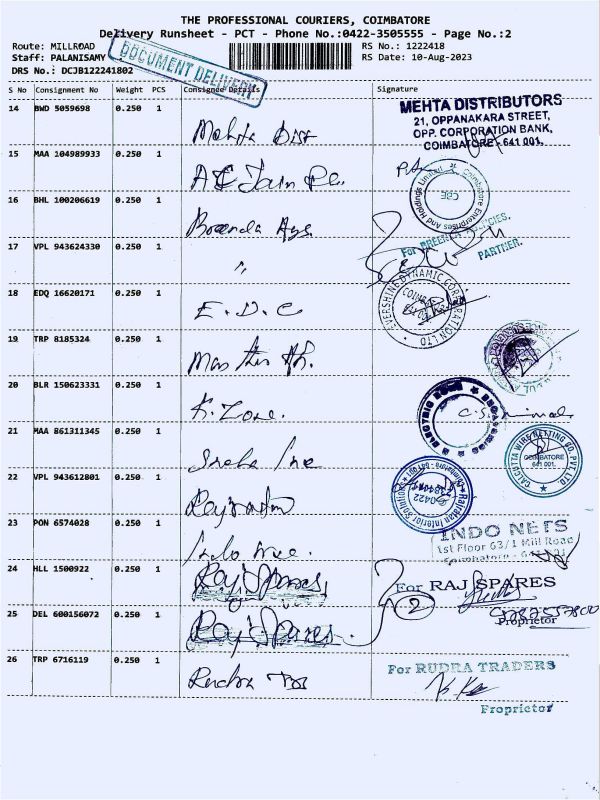 THE PROFESSIONAL COURIERS, COIMBATORE
Delivery Runsheet - PCT - Phone No.:0422-3505555 - Page No.:2
Route: MILLROAD
Staff: PALANISAMY
DRS No.: DCJB122241802
DOCUMENT DELIVERY
RS No.: 1222418
RS Date: 10-Aug-2023
S No Consignment No Weight PCS Consignee Details Signature
14 BWD 5059698 0.250 1
MEHTA DISTRIBUTORS
21, OPPANAKARA STREET,
OPP. CORPORATION BANK,
COIMBATORE - 641 001.
15 MAA 104989933 0.250 1 Jain
Coimbatore Enterprises And Holdings Limited
CBE
16 BHL 100206619 0.250 1
For AGENCIES.
PARTNER.
17 VPL 943624330 0.250 1 "
18 EDQ 16620171 0.250 1 E.D.C
EVERSHINE DYNAMIC CORPORATION LTD
19 TRP 8185324 0.250 1
20 BLR 150623331 0.250 1 K. Zone.
ELECTRIC ZONE
21 MAA 861311345 0.250 1 Sneha Inc
CALCUTTA WIRE NETTING CO. PVT. LTD
COIMBATORE
641 001.
22 VPL 943612801 0.250 1
Rajratan Interior Solutions
23 PON 6574028 0.250 1 Indo
INDO NETS
1st Floor 63/1 Mill Road
24 HLL 1500922 0.250 1 Raj Spares
For RAJ SPARES
2
Proprietor
25 DEL 600156072 0.250 1 Raj Spares.
26 TRP 6716119 0.250 1 Rudra
For RUDRA TRADERS
Proprietor